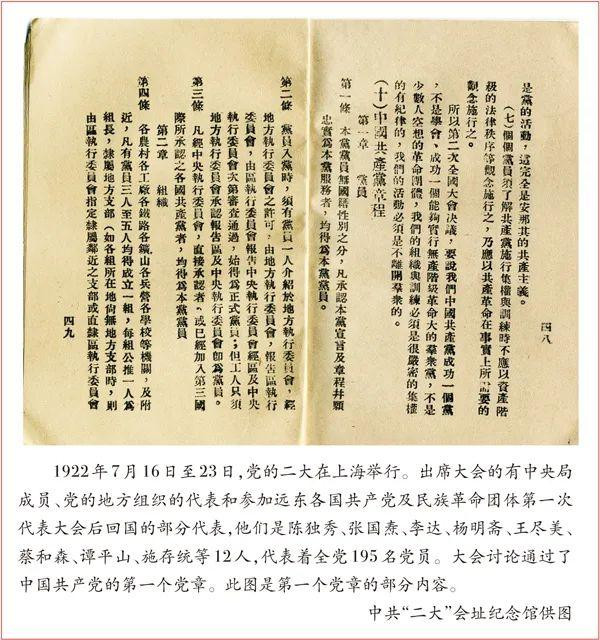 是黨的活動，這完全是安那其的共產主義。
(七)個個黨員須了解共產黨施行集權與訓練時不應以資產階
級的法律秩序等觀念施行之，乃應以共產革命在事實上所需要的
觀念施行之。
所以第二次全國大會決議，要說我們中國共產黨成功一個黨
，不是學會，成功一個能夠實行無產階級革命大的羣衆黨，不是
少數人空想的革命團體，我們的組織與訓練必須是很嚴密的集權
的有紀律的，我們的活動必須是不離開羣衆的。
(十)中國共產黨章程
第一章 黨員
第一條 本黨黨員無國籍性別之分，凡承認本黨宣言及章程并願
忠實爲本黨服務者，均得爲本黨黨員。
四八
第二條 黨員入黨時，須有黨員一人介紹於地方執行委員會，經
地方執行委員會之許可，由地方執行委員會，報告區執行
委員會，由區執行委員會報告中央執行委員會經區及中央
執行委員會次第審查通過，始得爲正式黨員；但工人只須
地方執行委員會承認報告區及中央執行委員會卽爲黨員。
第三條 凡經中央執行委員會，直接承認者，或已經加入第三國
際所承認之各國共產黨者，均得爲本黨黨員
第二章 組織
第四條 各農村各工廠各鐵路各鑛山各兵營各學校等機關，及附
近，凡有黨員三人至五人均得成立一組，每組公推一人爲
組長，隸屬地方支部（如各組所在地尙無地方支部時，則
由區執行委員會指定隸屬鄰近之支部或直隸區執行委員會
四九
1922年7月16日至23日，党的二大在上海举行。出席大会的有中央局
成员、党的地方组织的代表和参加远东各国共产党及民族革命团体第一次
代表大会后回国的部分代表，他们是陈独秀、张国焘、李达、杨明斋、王尽美、
蔡和森、谭平山、施存统等12人，代表着全党195名党员。大会讨论通过了
中国共产党的第一个党章。此图是第一个党章的部分内容。
中共“二大”会址纪念馆供图